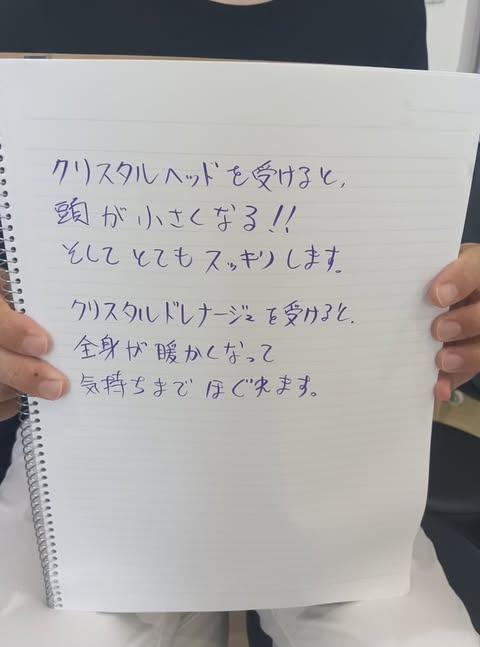 クリスタルヘッドを受けると、
頭が小さくなる!!
そしてとてもスッキリします。
クリスタルドレナージュを受けると、
全身が暖かくなって
気持ちまでほぐれます。